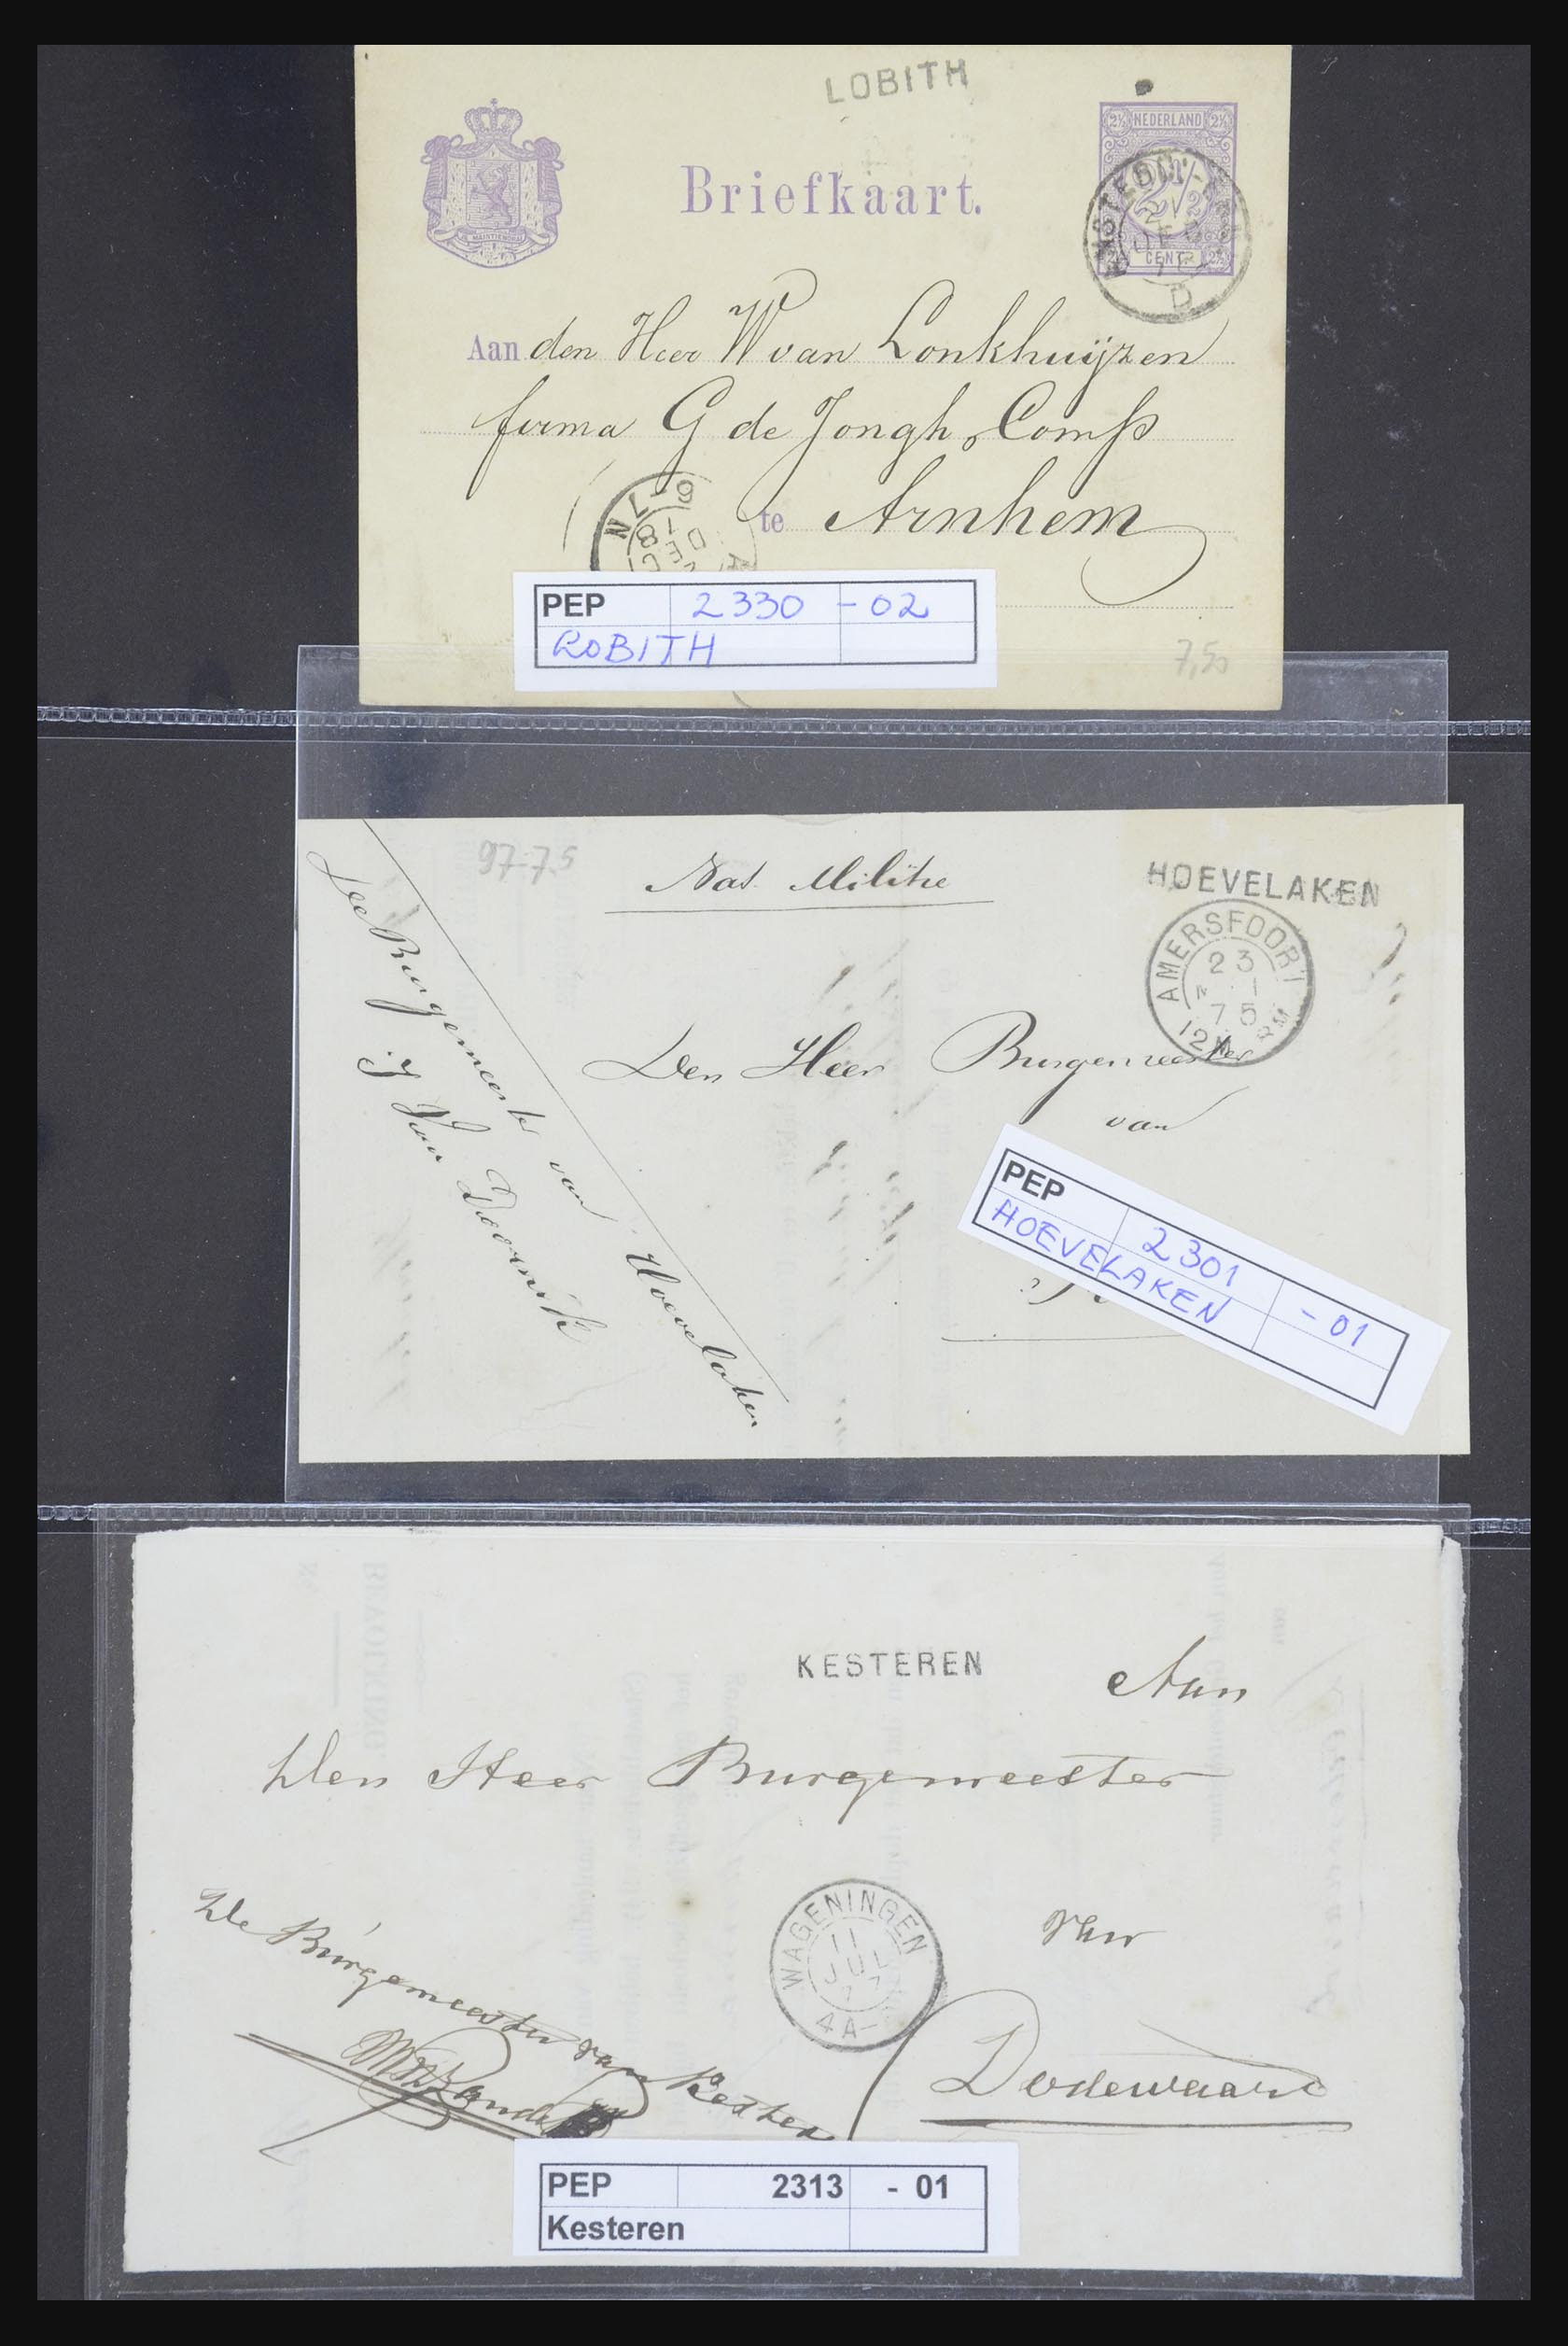 LOBITH
2½ NEDERLAND 2½
Briefkaart.
2½
CENT
D
Aan den Heer W van Lonkhuijzen
firma G de Jongh & Comp
te Arnhem
PEP 2330 - 02
LOBITH
7,50
97-7.5
Nat. Militie
HOEVELAKEN
AMERSFOORT
23
1
75
12
Den Heer Burgemeester
van
De Burgemeester van Hoevelaken
J van Doornik
PEP 2301 - 01
HOEVELAKEN
KESTEREN
Aan
Den Heer Burgemeester
WAGENINGEN
11
JUL
77
4A-
Van
Dodewaard
De Burgemeester van Kesteren
BEVOLKING.
PEP 2313 - 01
Kesteren